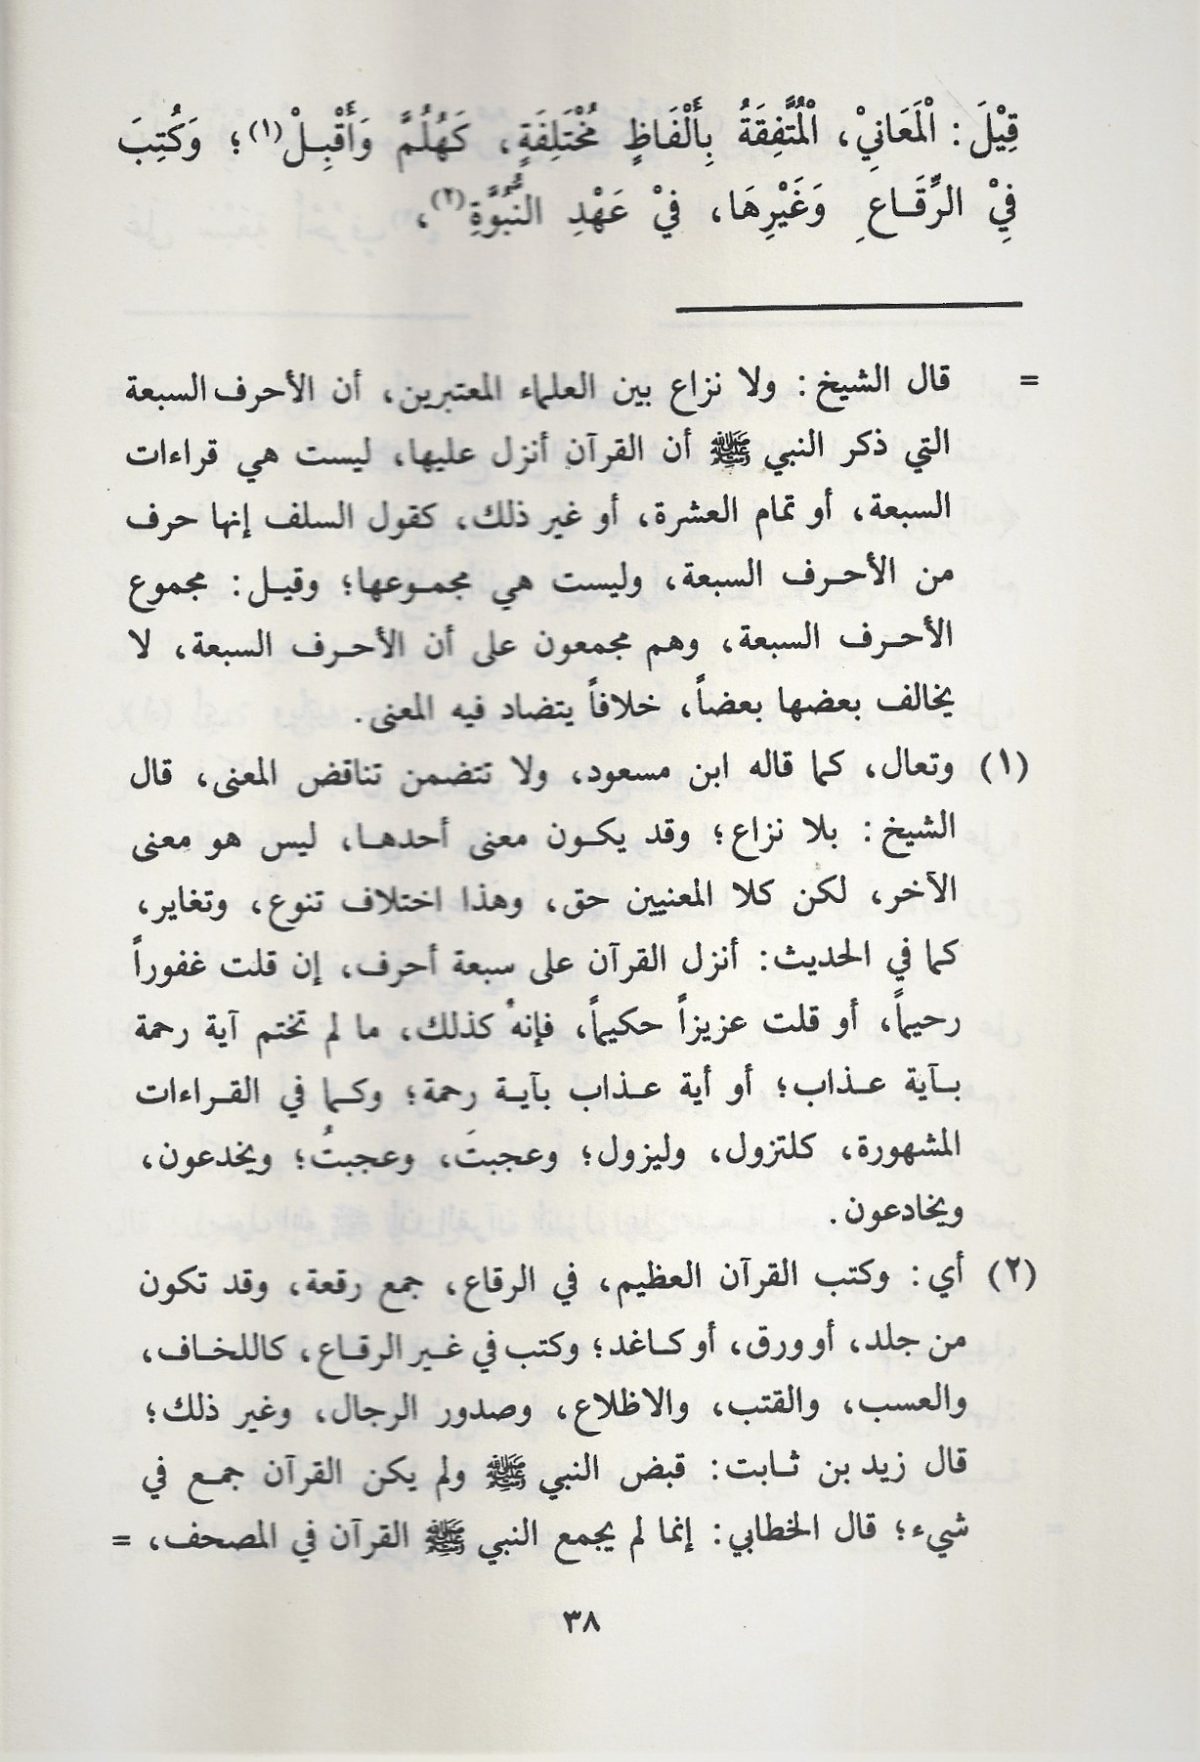 قِيْلَ: الْمَعَانِيْ، الْمُتَّفِقَةُ بِأَلْفَاظٍ مُخْتَلِفَةٍ، كَهَلُمَّ وَأَقْبِلْ(١)؛ وَكُتِبَ
فِيْ الرِّقَاعِ وَغَيْرِهَا، فِيْ عَهْدِ النُّبُوَّةِ(٢)،
= قال الشيخ: ولا نزاع بين العلماء المعتبرين، أن الأحرف السبعة
التي ذكر النبي ﷺ أن القرآن أنزل عليها، ليست هي قراءات
السبعة، أو تمام العشرة، أو غير ذلك، كقول السلف إنها حرف
من الأحرف السبعة، وليست هي مجموعها؛ وقيل: مجموع
الأحرف السبعة، وهم مجمعون على أن الأحرف السبعة، لا
يخالف بعضها بعضاً، خلافاً يتضاد فيه المعنى.
(١) وتعال، كما قاله ابن مسعود، ولا تتضمن تناقض المعنى، قال
الشيخ: بلا نزاع؛ وقد يكون معنى أحدها، ليس هو معنى
الآخر، لكن كلا المعنيين حق، وهذا اختلاف تنوع، وتغاير،
كما في الحديث: أنزل القرآن على سبعة أحرف، إن قلت غفوراً
رحيماً، أو قلت عزيزاً حكيماً، فإنه كذلك، ما لم تختم آية رحمة
بآية عذاب؛ أو أية عذاب بآية رحمة؛ وكما في القراءات
المشهورة، كلتزول، وليزول؛ وعجبتَ، وعجبتُ؛ ويخدعون،
ويخادعون.
(٢) أي: وكتب القرآن العظيم، في الرقاع، جمع رقعة، وقد تكون
من جلد، أو ورق، أو كاغد؛ وكتب في غير الرقاع، كاللخاف،
والعسب، والقتب، والاظلاع، وصدور الرجال، وغير ذلك؛
قال زيد بن ثابت: قبض النبي ﷺ ولم يكن القرآن جمع في
شيء؛ قال الخطابي: إنما لم يجمع النبي ﷺ القرآن في المصحف، =
٣٨